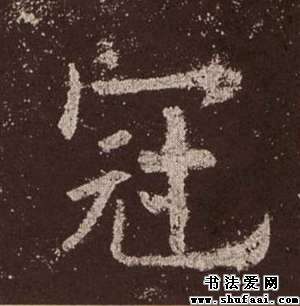 冠
书法爱网
www.shufaai.com